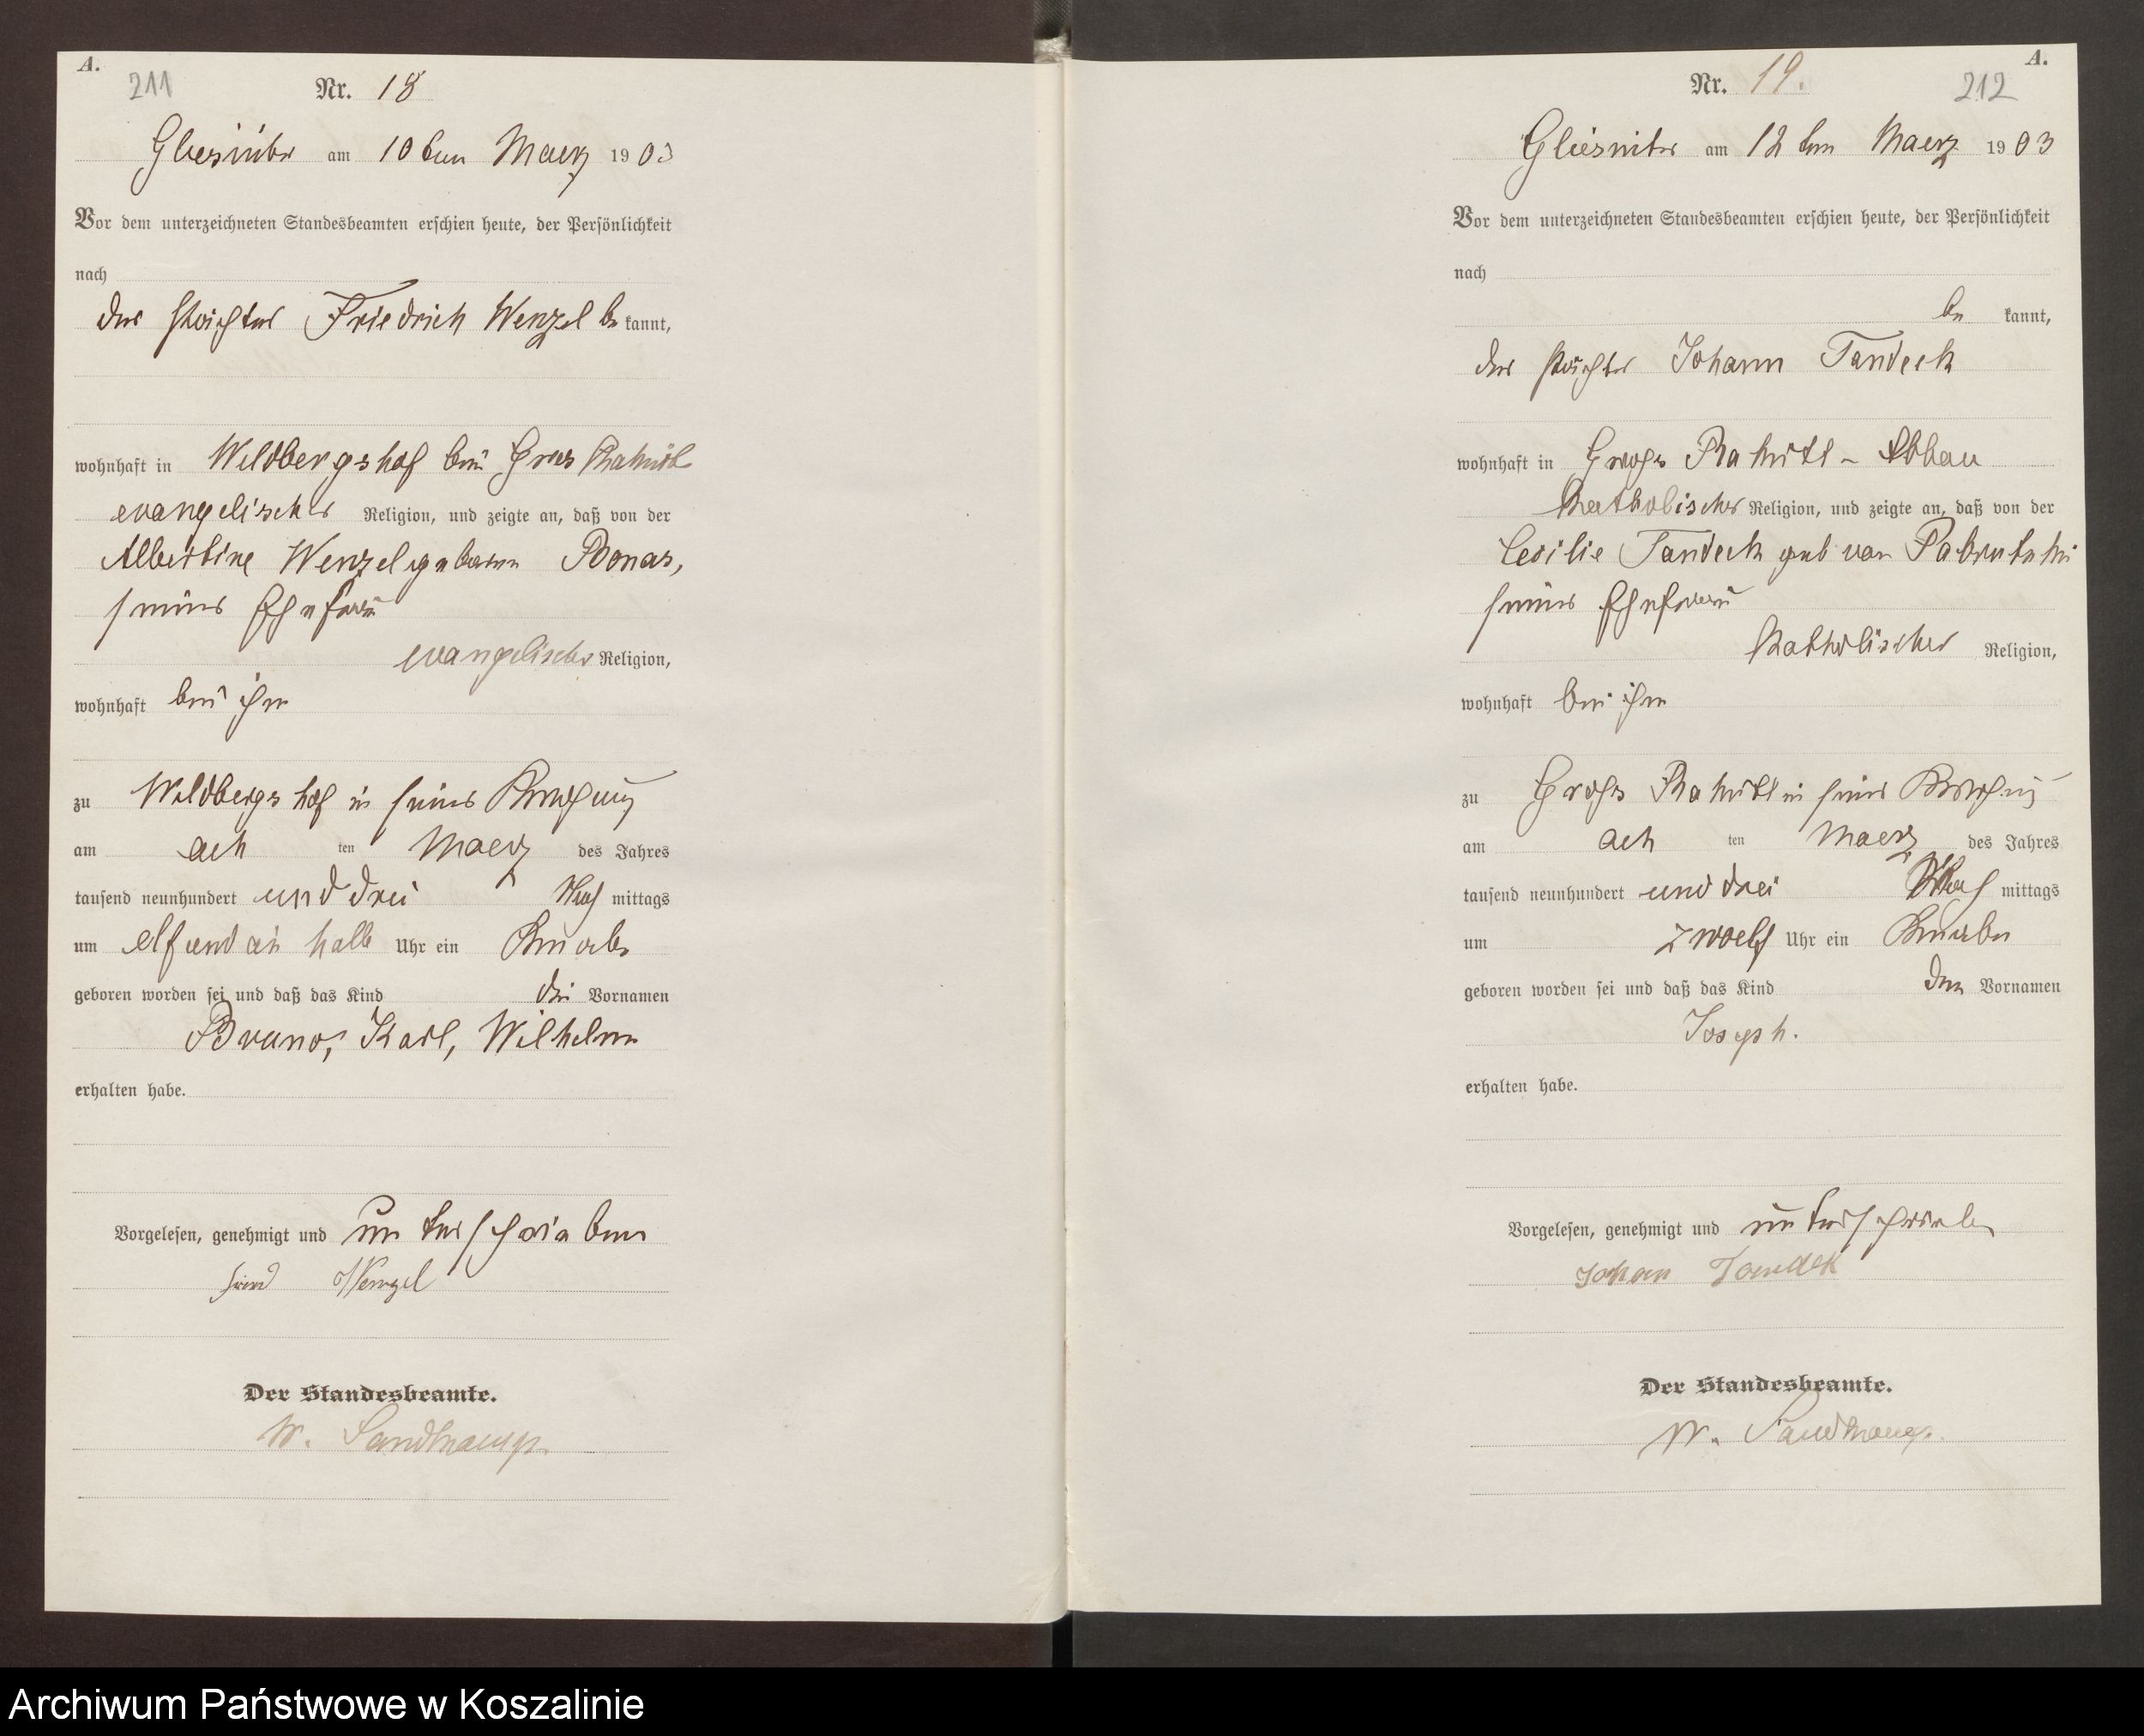 A.
211
Nr. 18
Gliesnitz am 10ten Maerz 1903
Vor dem unterzeichneten Standesbeamten erschien heute, der Persönlichkeit
nach
der Paechter Friedrich Wenzel be kannt,
wohnhaft in Wildbergshof bei Gross
evangelischer Religion, und zeigte an, daß von der
Albertine Wenzel geborene Bonas,
seiner Ehefrau
evangelischer Religion,
wohnhaft bei ihm
zu Wildbergshof in seiner Behausung
am ach ten Maerz des Jahres
tausend neunhundert und drei Nach mittags
um elf und ein halb Uhr ein Knabe
geboren worden sei und daß das Kind die Vornamen
Bruno, Karl, Wilhelm
erhalten habe.
Vorgelesen, genehmigt und unterschrieben
Wenzel
Der Standesbeamte.
W. Sandkamp.
A.
Nr. 19.
212
Gliesnitz am 12ten Maerz 1903
Vor dem unterzeichneten Standesbeamten erschien heute, der Persönlichkeit
nach
be kannt,
der Paechter Johann Tandeck
wohnhaft in Gross - Abbau
katholischer Religion, und zeigte an, daß von der
Cecilie Tandeck geborenen
seiner Ehefrau
katholischer Religion,
wohnhaft bei ihm
zu Gross in seiner Behausung
am ach ten Maerz des Jahres
tausend neunhundert und drei mittags
um zwoelf Uhr ein Knabe
geboren worden sei und daß das Kind den Vornamen
Joseph.
erhalten habe.
Vorgelesen, genehmigt und unterschrieben
Johan Tandek
Der Standesbeamte.
W. Sandkamp.
Archiwum Państwowe w Koszalinie